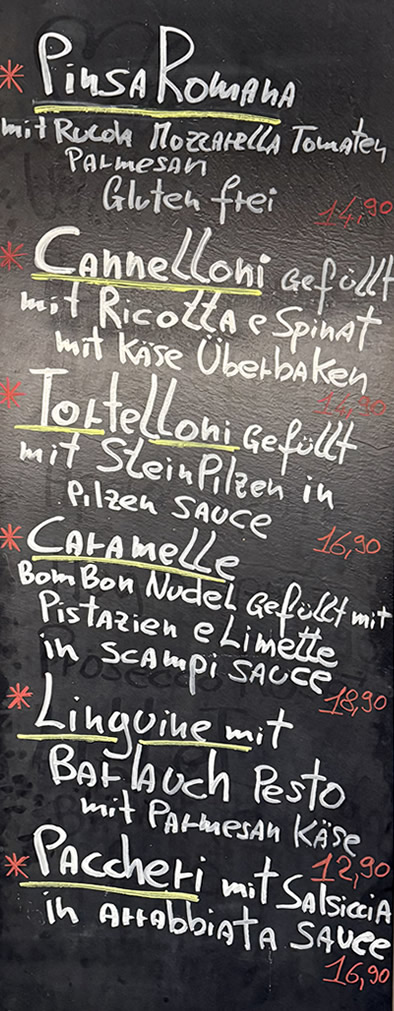 * Pinsa Romana
mit Rucola Mozzarella Tomaten
Parmesan
Gluten frei
14,90
* Cannelloni gefüllt
mit Ricotta e Spinat
mit Käse Überbaken
14,90
* Tortelloni gefüllt
mit SteinPilzen in
Pilzen SAUCE
16,90
* Caramelle
BomBon Nudel gefüllt mit
Pistazien e Limette
in scampi SAUCE
18,90
* Linguine mit
Barlauch Pesto
mit Parmesan Käse
12,90
* Paccheri mit Salsiccia
in arrabbiata sauce
16,90